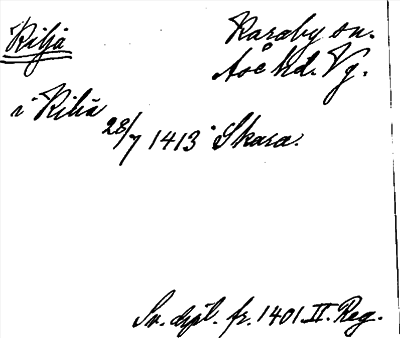 Kilja
Karaby sn.
Åse hd. Vg.
i Kilia
28/7 1413 Skara.
Sv. dipl. fr. 1401. II. Reg.